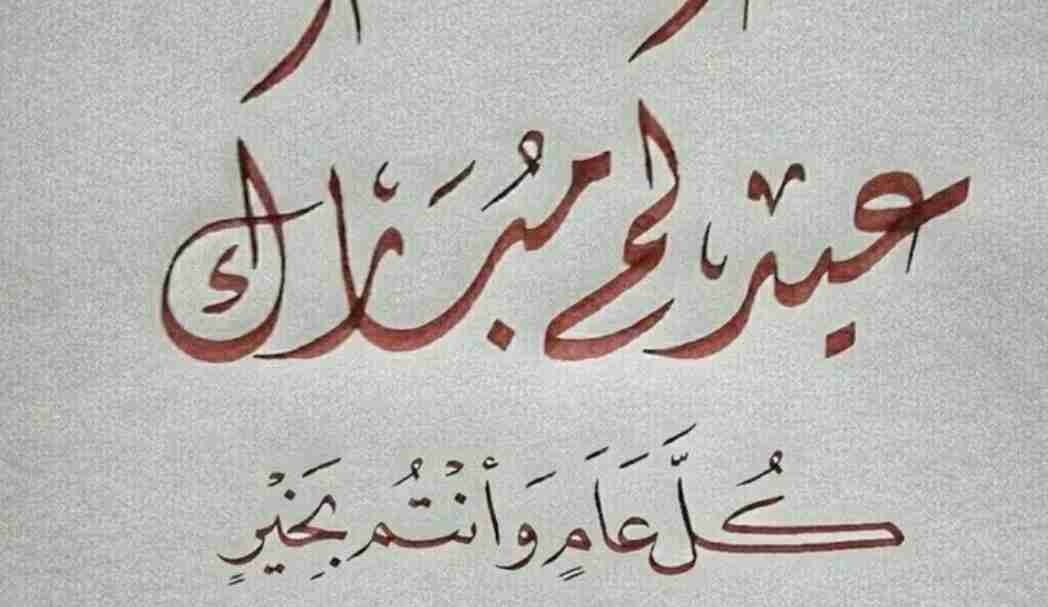 عيدكم مُبَارَك
كُلَّ عَامٍ وَأَنْتُم بِخَيْرٍ